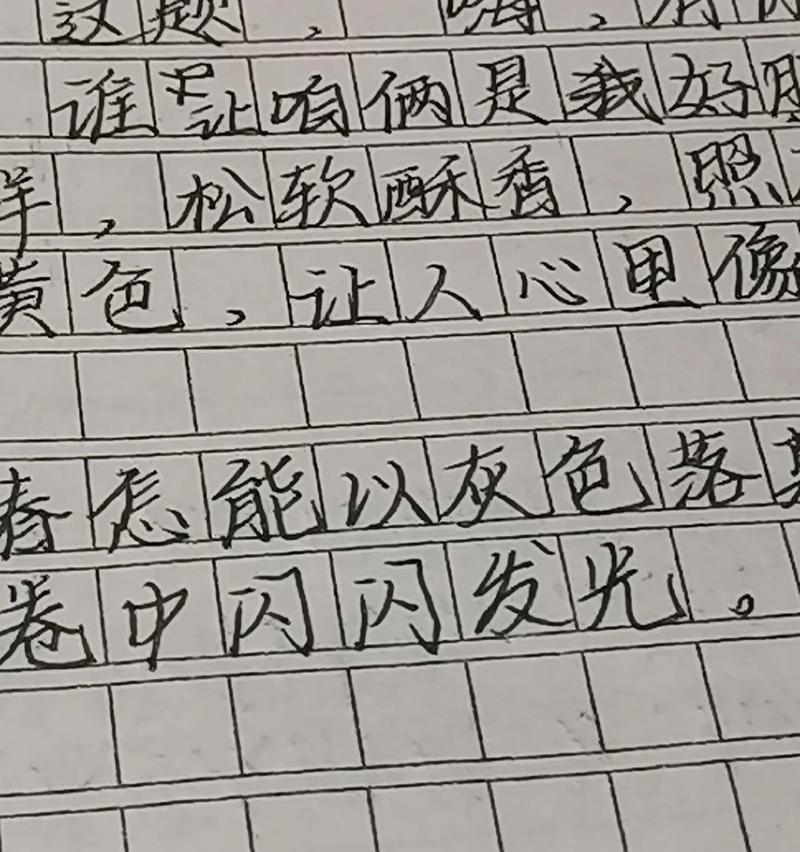 这题，嗨，
谁让咱俩是我好朋
羊，松软酥香，照
黄色，让人心里像
春怎能以灰色落
卷中闪闪发光。